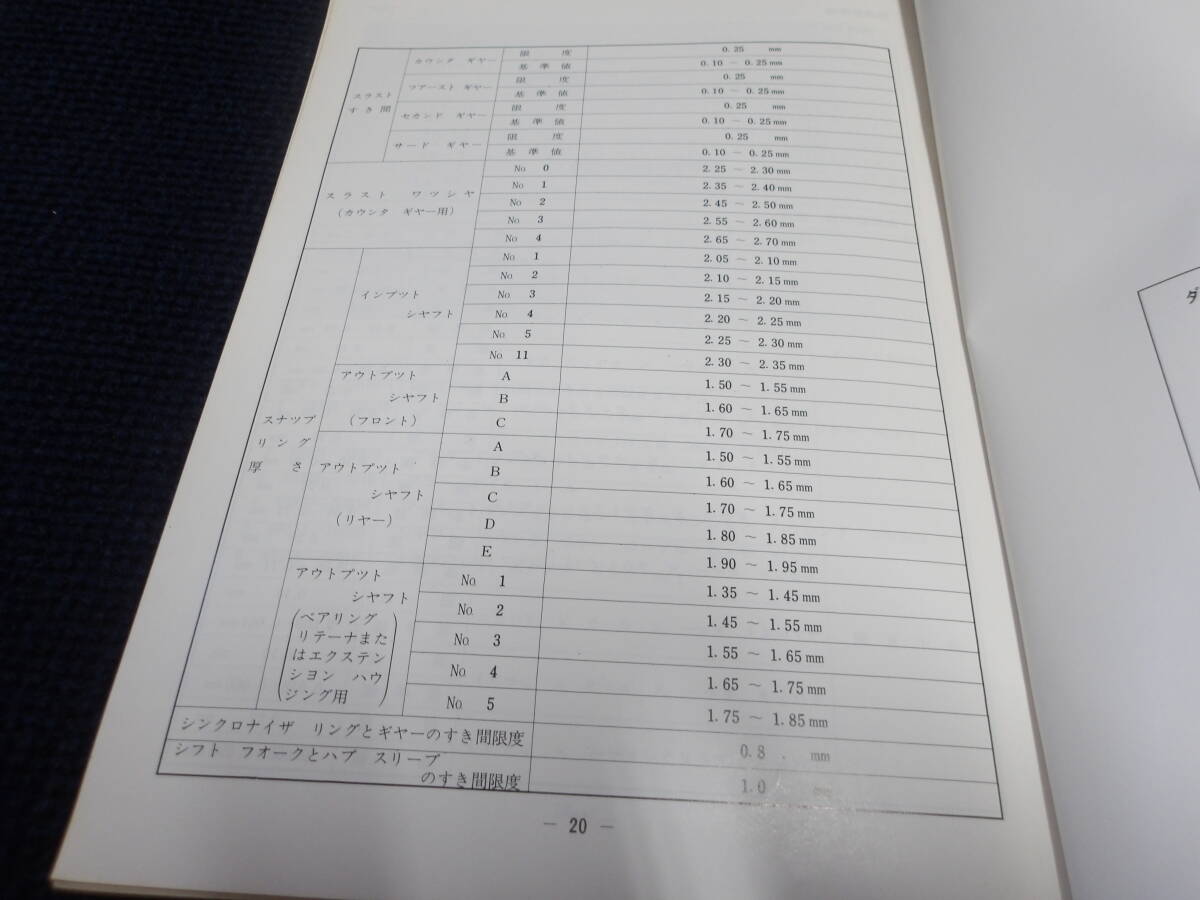 スラスト すき間 カウンタ ギヤー 限度 0.25 mm
基準値 0.10 ～ 0.25mm
フアースト ギヤー 限度 0.25 mm
基準値 0.10 ～ 0.25mm
セカンド ギヤー 限度 0.25 mm
基準値 0.10 ～ 0.25mm
サード ギヤー 限度 0.25 mm
基準値 0.10 ～ 0.25mm
スラスト ワツシヤ (カウンタ ギヤー用) No 0 2.25 ～ 2.30mm
No 1 2.35 ～ 2.40mm
No 2 2.45 ～ 2.50mm
No 3 2.55 ～ 2.60mm
No 4 2.65 ～ 2.70mm
スナツプ リング 厚さ インプツト シヤフト No 1 2.05 ～ 2.10mm
No 2 2.10 ～ 2.15mm
No 3 2.15 ～ 2.20mm
No 4 2.20 ～ 2.25mm
No 5 2.25 ～ 2.30mm
No 11 2.30 ～ 2.35mm
アウトプツト シヤフト (フロント) A 1.50 ～ 1.55mm
B 1.60 ～ 1.65mm
C 1.70 ～ 1.75mm
アウトプツト シヤフト (リヤー) A 1.50 ～ 1.55mm
B 1.60 ～ 1.65mm
C 1.70 ～ 1.75mm
D 1.80 ～ 1.85mm
E 1.90 ～ 1.95mm
アウトプツト シヤフト (ベアリング リテーナまたはエクステンシヨン ハウジング用) No 1 1.35 ～ 1.45mm
No 2 1.45 ～ 1.55mm
No 3 1.55 ～ 1.65mm
No 4 1.65 ～ 1.75mm
No 5 1.75 ～ 1.85mm
シンクロナイザ リングとギヤーのすき間限度 0.8 mm
シフト フオークとハブ スリーブ のすき間限度 1.0 mm
― 20 ―
ダ